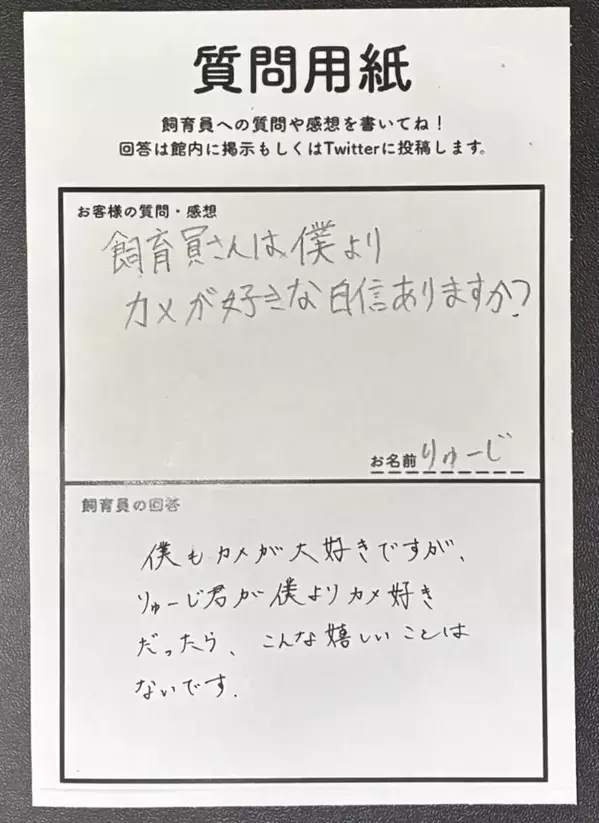 質問用紙
飼育員への質問や感想を書いてね！
回答は館内に掲示もしくはTwitterに投稿します。
お客様の質問・感想
飼育員さんは、僕より
カメが好きな自信ありますか？
お名前 りゅーじ
飼育員の回答
僕もカメが大好きですが、
りゅーじ君が僕よりカメ好き
だったら、こんな嬉しいことは
ないです.